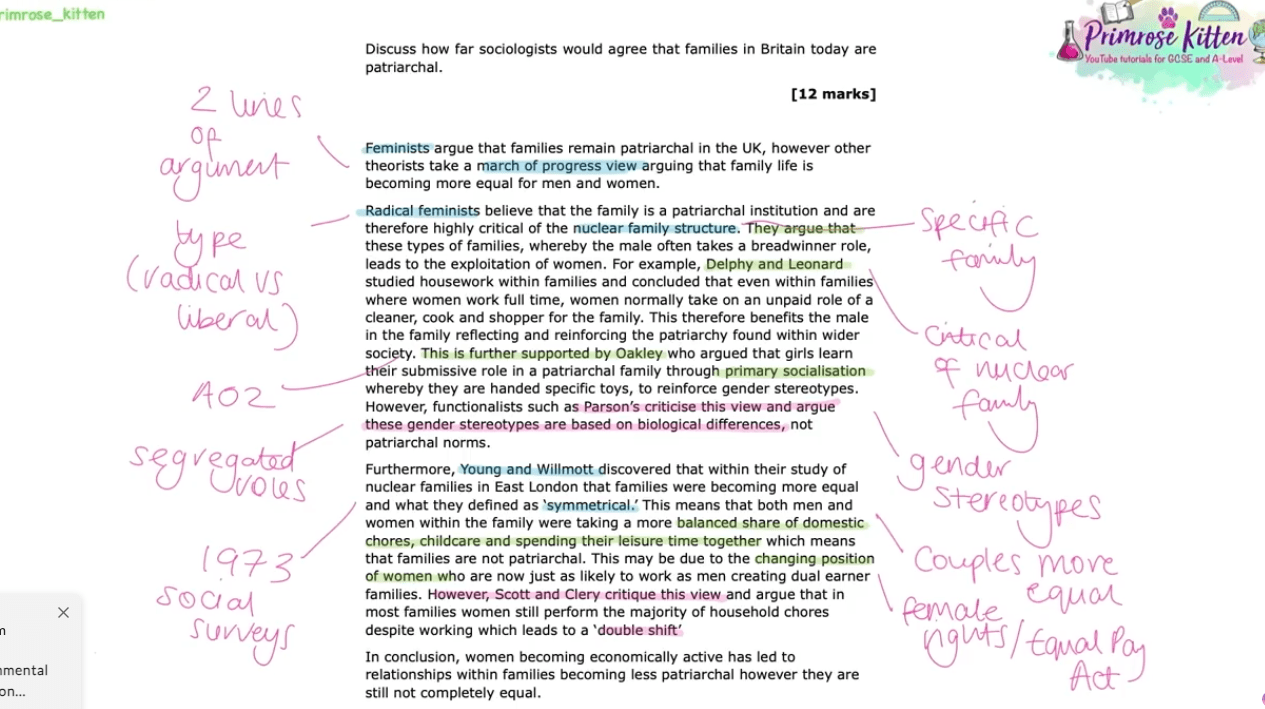 rimrose_kitten
Primrose Kitten
YouTube tutorials for GCSE and A-Level
Discuss how far sociologists would agree that families in Britain today are
patriarchal.
[12 marks]
2 lines
of
argument
Feminists argue that families remain patriarchal in the UK, however other
theorists take a march of progress view arguing that family life is
becoming more equal for men and women.
type
(radical vs
liberal)
Radical feminists believe that the family is a patriarchal institution and are
therefore highly critical of the nuclear family structure. They argue that
these types of families, whereby the male often takes a breadwinner role,
leads to the exploitation of women. For example, Delphy and Leonard
studied housework within families and concluded that even within families
where women work full time, women normally take on an unpaid role of a
cleaner, cook and shopper for the family. This therefore benefits the male
in the family reflecting and reinforcing the patriarchy found within wider
society. This is further supported by Oakley who argued that girls learn
their submissive role in a patriarchal family through primary socialisation
whereby they are handed specific toys, to reinforce gender stereotypes.
However, functionalists such as Parson's criticise this view and argue
these gender stereotypes are based on biological differences, not
patriarchal norms.
specific
family
critical
of nuclear
family
AO2
segregated
roles
gender
stereotypes
Furthermore, Young and Willmott discovered that within their study of
nuclear families in East London that families were becoming more equal
and what they defined as 'symmetrical.' This means that both men and
women within the family were taking a more balanced share of domestic
chores, childcare and spending their leisure time together which means
that families are not patriarchal. This may be due to the changing position
of women who are now just as likely to work as men creating dual earner
families. However, Scott and Clery critique this view and argue that in
most families women still perform the majority of household chores
despite working which leads to a 'double shift'
1973
social
surveys
Couples more
equal
female
rights/Equal Pay
Act
In conclusion, women becoming economically active has led to
relationships within families becoming less patriarchal however they are
still not completely equal.
m
nmental
on...